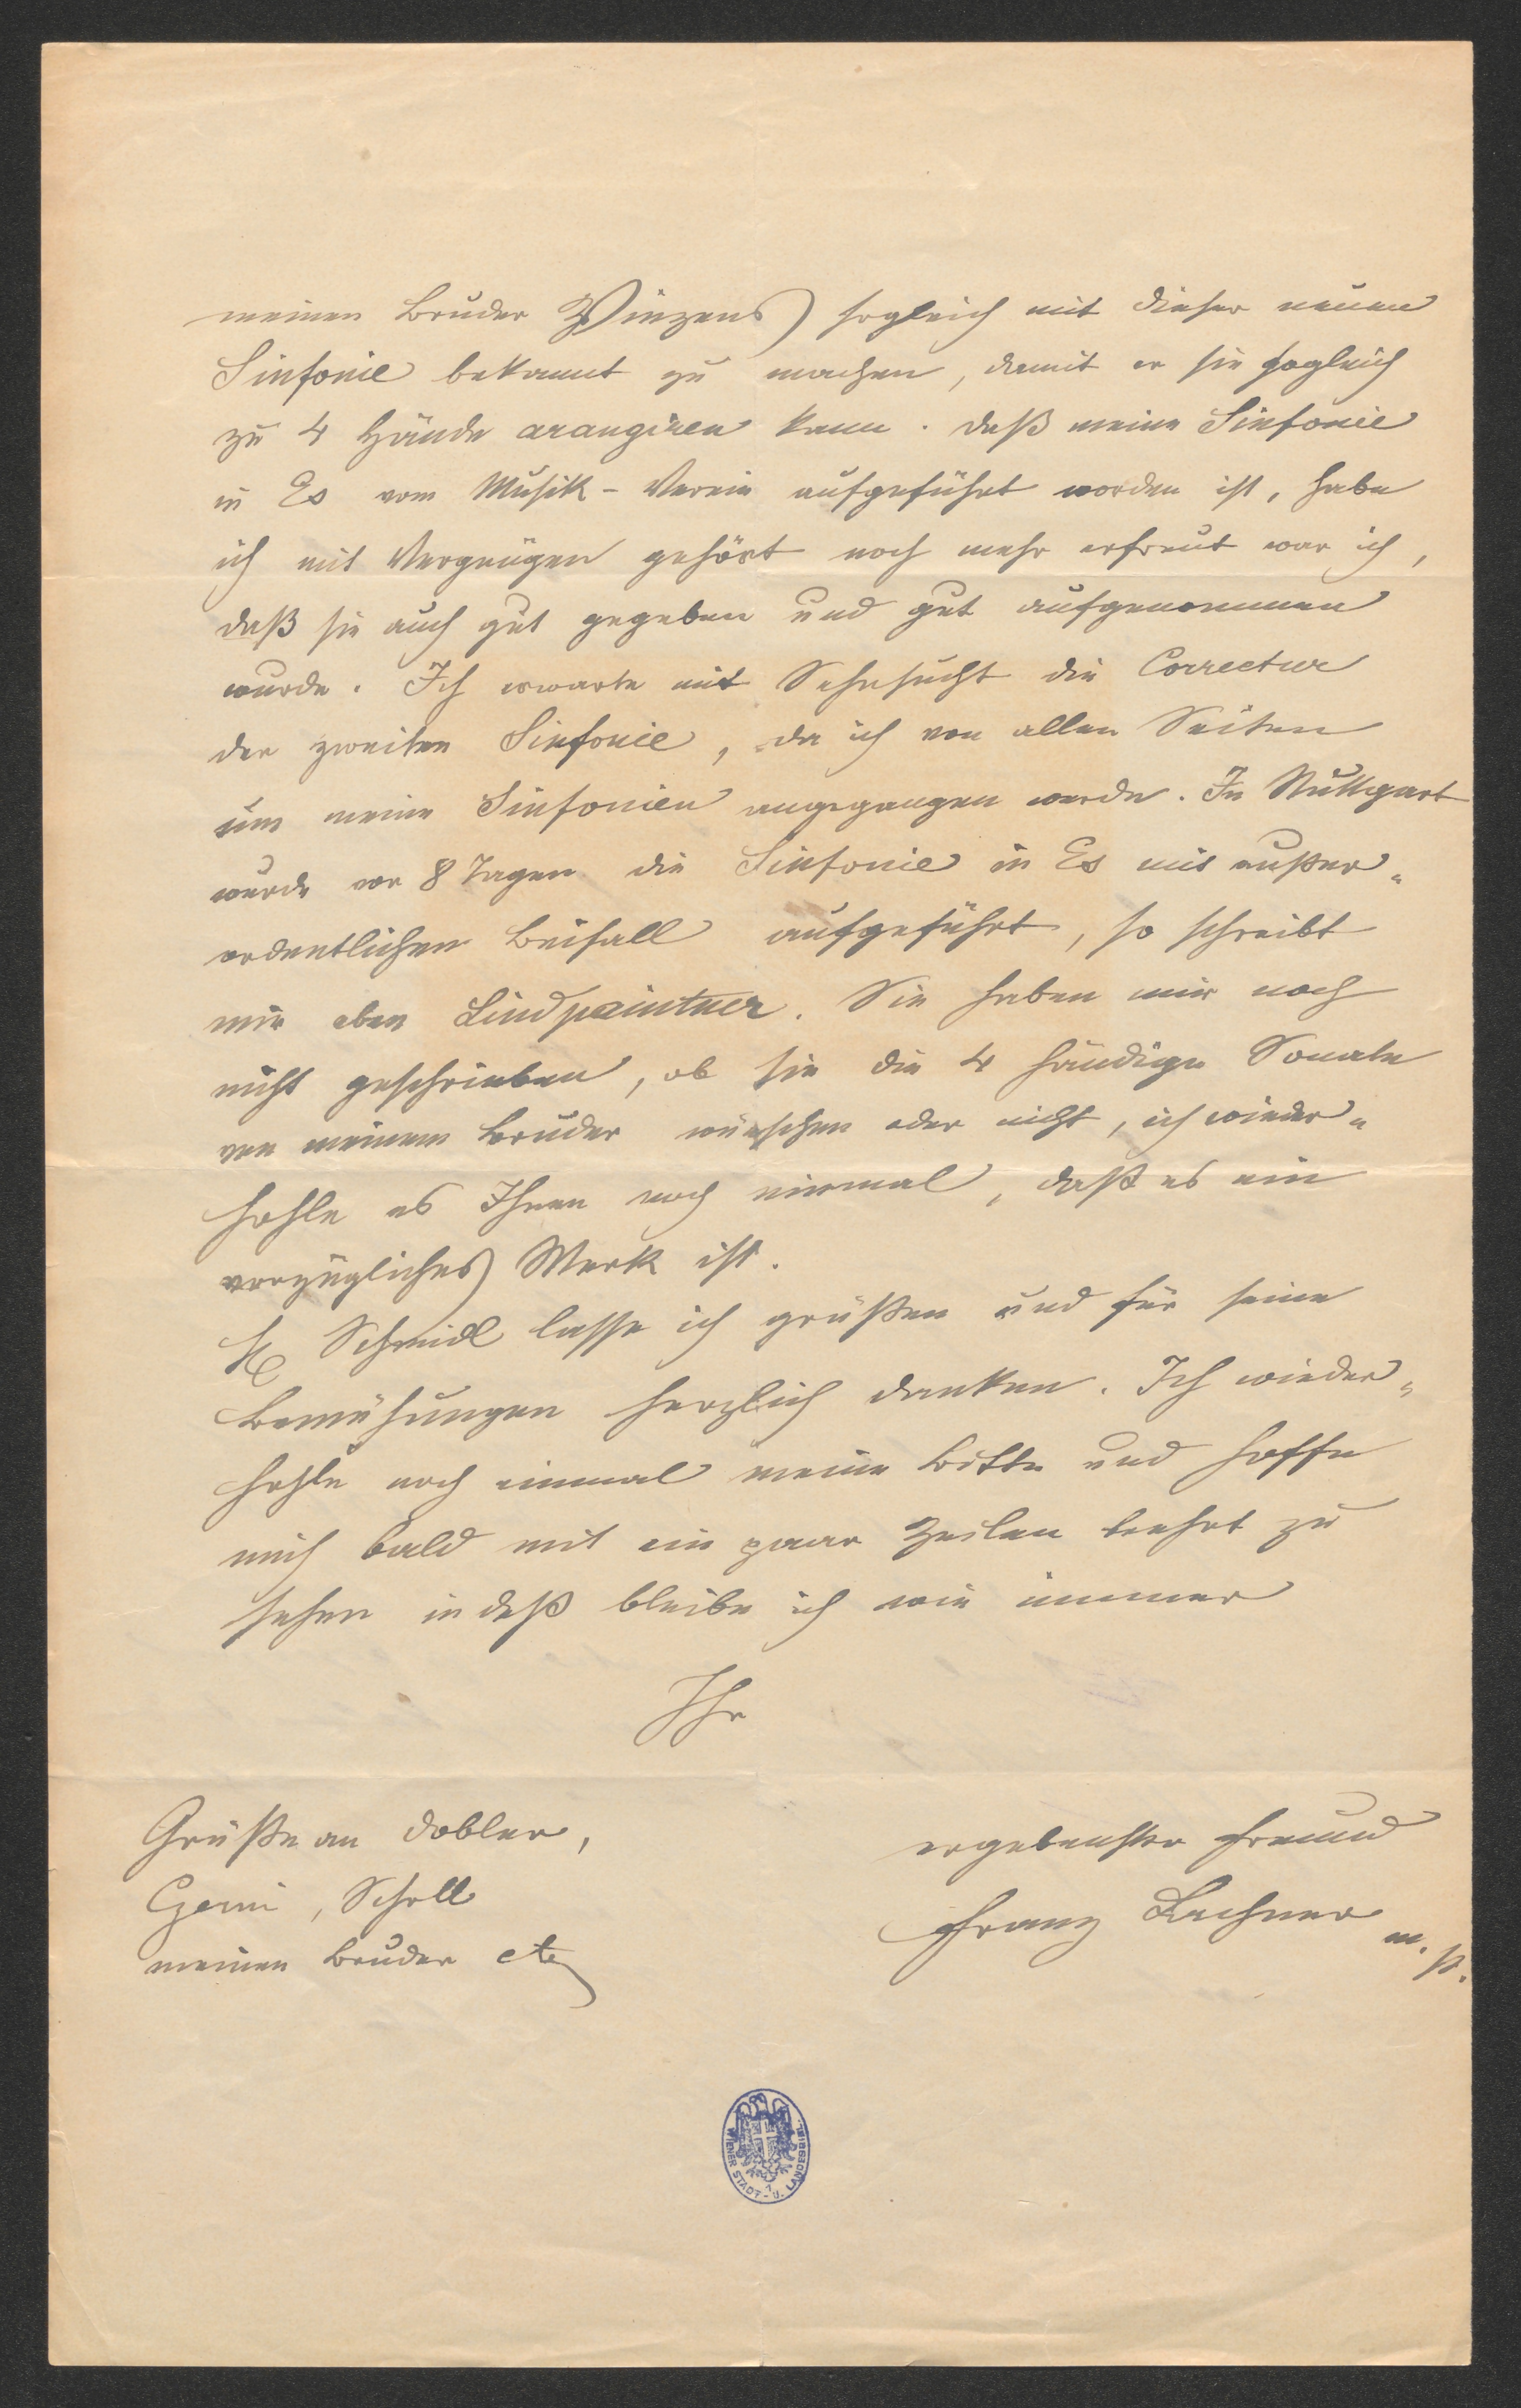 meinen Bruder Vinzens sogleich mit dieser neuen
Sinfonie bekannt zu machen, damit er sie sogleich
zu 4 Hände arangiren kann. daß meine Sinfonie
in Es vom Musik-Verein aufgeführt worden ist, habe
ich mit Vergnügen gehört noch mehr erfreut war ich,
daß sie auch gut gegeben und gut aufgenommen
wurde. Ich erwarte mit Sehnsucht die Correctur
der zweiten Sinfonie, da ich von allen Seiten
um meine Sinfonien angegangen werde. In Stuttgart
wurde vor 8 Tagen die Sinfonie in Es mit außer„
ordentlichen Beifall aufgeführt, so schreibt
mir eben Lindpaintner. Sie haben mir noch
nicht geschrieben, ob sie die 4 händige Sonate
von meinem Bruder wünschen oder nicht, ich wieder„
hohle es Ihnen noch einmal, daß es ein
vorzügliches Werk ist.
H Schmidl lasse ich grüßen und für seine
Bemühungen herzlich danken. Ich wieder„
hohle noch einmal meine Bitte und hoffe
mich bald mit ein paar Zeilen beehrt zu
sehen indeß bleibe ich wie immer
Ihr
ergebenster Freund
Franz Lachner
m. p.
Grüße an Dobler,
Czerni, Scholl
meinen Bruder etc
WIENER STADT- U. LANDESBIBL.